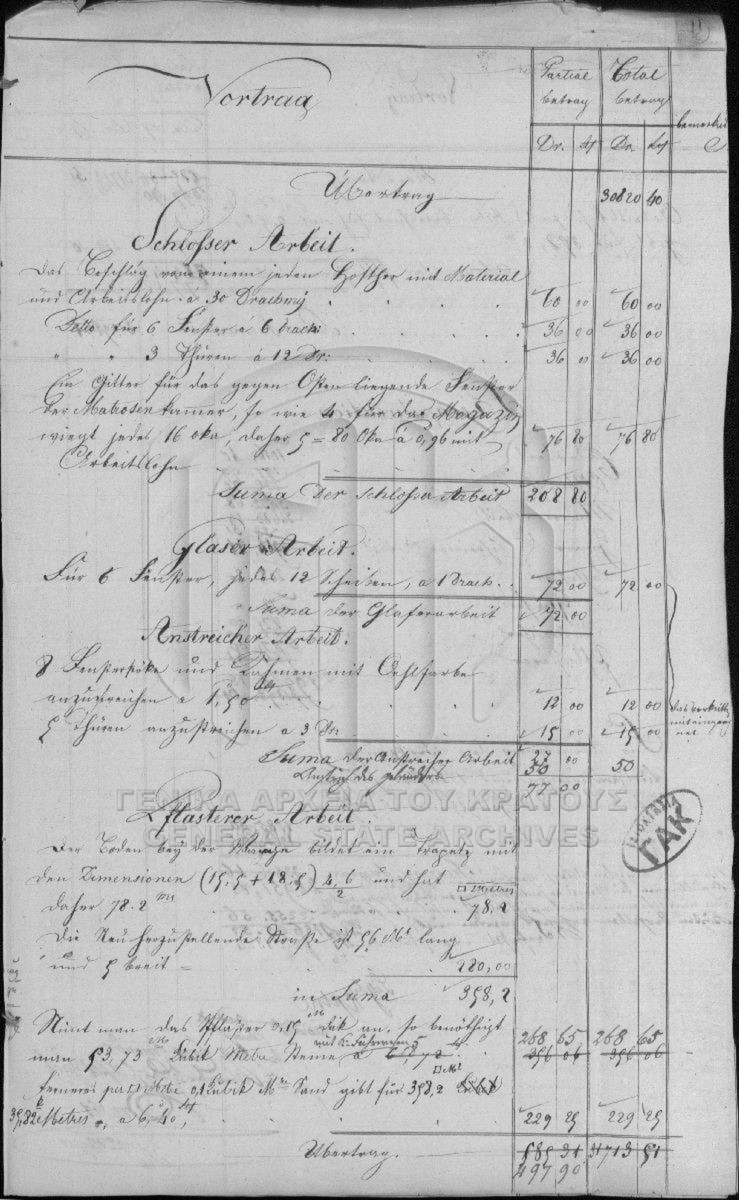 11
Vortrag
Partial betrag
Total betrag
Dr. Lp
Dr. Lp
Übertrag 30820 40
Schlosser Arbeit.
Das Beschläg von einem jeden Hofthor mit Material
und Arbeitslohn a 30 Drachmen 60 00 60 00
Detto für 6 Fenster a 6 Drach: 36 00 36 00
" " 3 Thüren a 12 Dr: 36 00 36 00
Ein Gitter für das gegen Osten liegende Fenster
der Matrosen kamer, so wie 4 für das Magazin
wiegt jedes 16 oka, daher 5 = 80 Oka a 0,96 mit 76 80 76 80
Arbeitslohn
Suma der Schlosser Arbeit 208 80
Glaser Arbeit.
Für 6 Fenster, jedes 12 Scheiben, a 1 Drach. 72 00 72 00
Suma der Glaserarbeit 72 00
Anstreicher Arbeit.
8 Fensterstöke und Rahmen mit Oehlfarbe
anzustreichen a 1,50 12 00 12 00
5 Thüren anzustreichen a 3 Dr: 15 00 15 00
Suma der Anstreicher Arbeit 27 00
Anstrich des Geländers 50 50
77 00
ΓΕΝΙΚΑ ΑΡΧΕΙΑ ΤΟΥ ΚΡΑΤΟΥΣ
GENERAL STATE ARCHIVES
ΓΑΚ
Pflasterer Arbeit.
Der Boden bey der bildet ein Trapetz mit
den Dimensionen (15,5 + 18,5) 4,6/2 und hat □ Metres
daher 78.2 78,2
Die Neu herzustellende Straße ist 56 Mt lang
und 5 breit 280,00
in Suma 358,2
Nimt man das Pflaster 0,15 M dik an, so benöthigt 268 65 268 65
man 53,73 Kubik Metre Steine a 396 06 396 06
ferneres per □ Metre 0,1 Kubik M Sand gibt für 358,2 □ M
35,82 Metres a 6,40 229 25 229 25
Übertrag. 585 31 31713 51
497 90